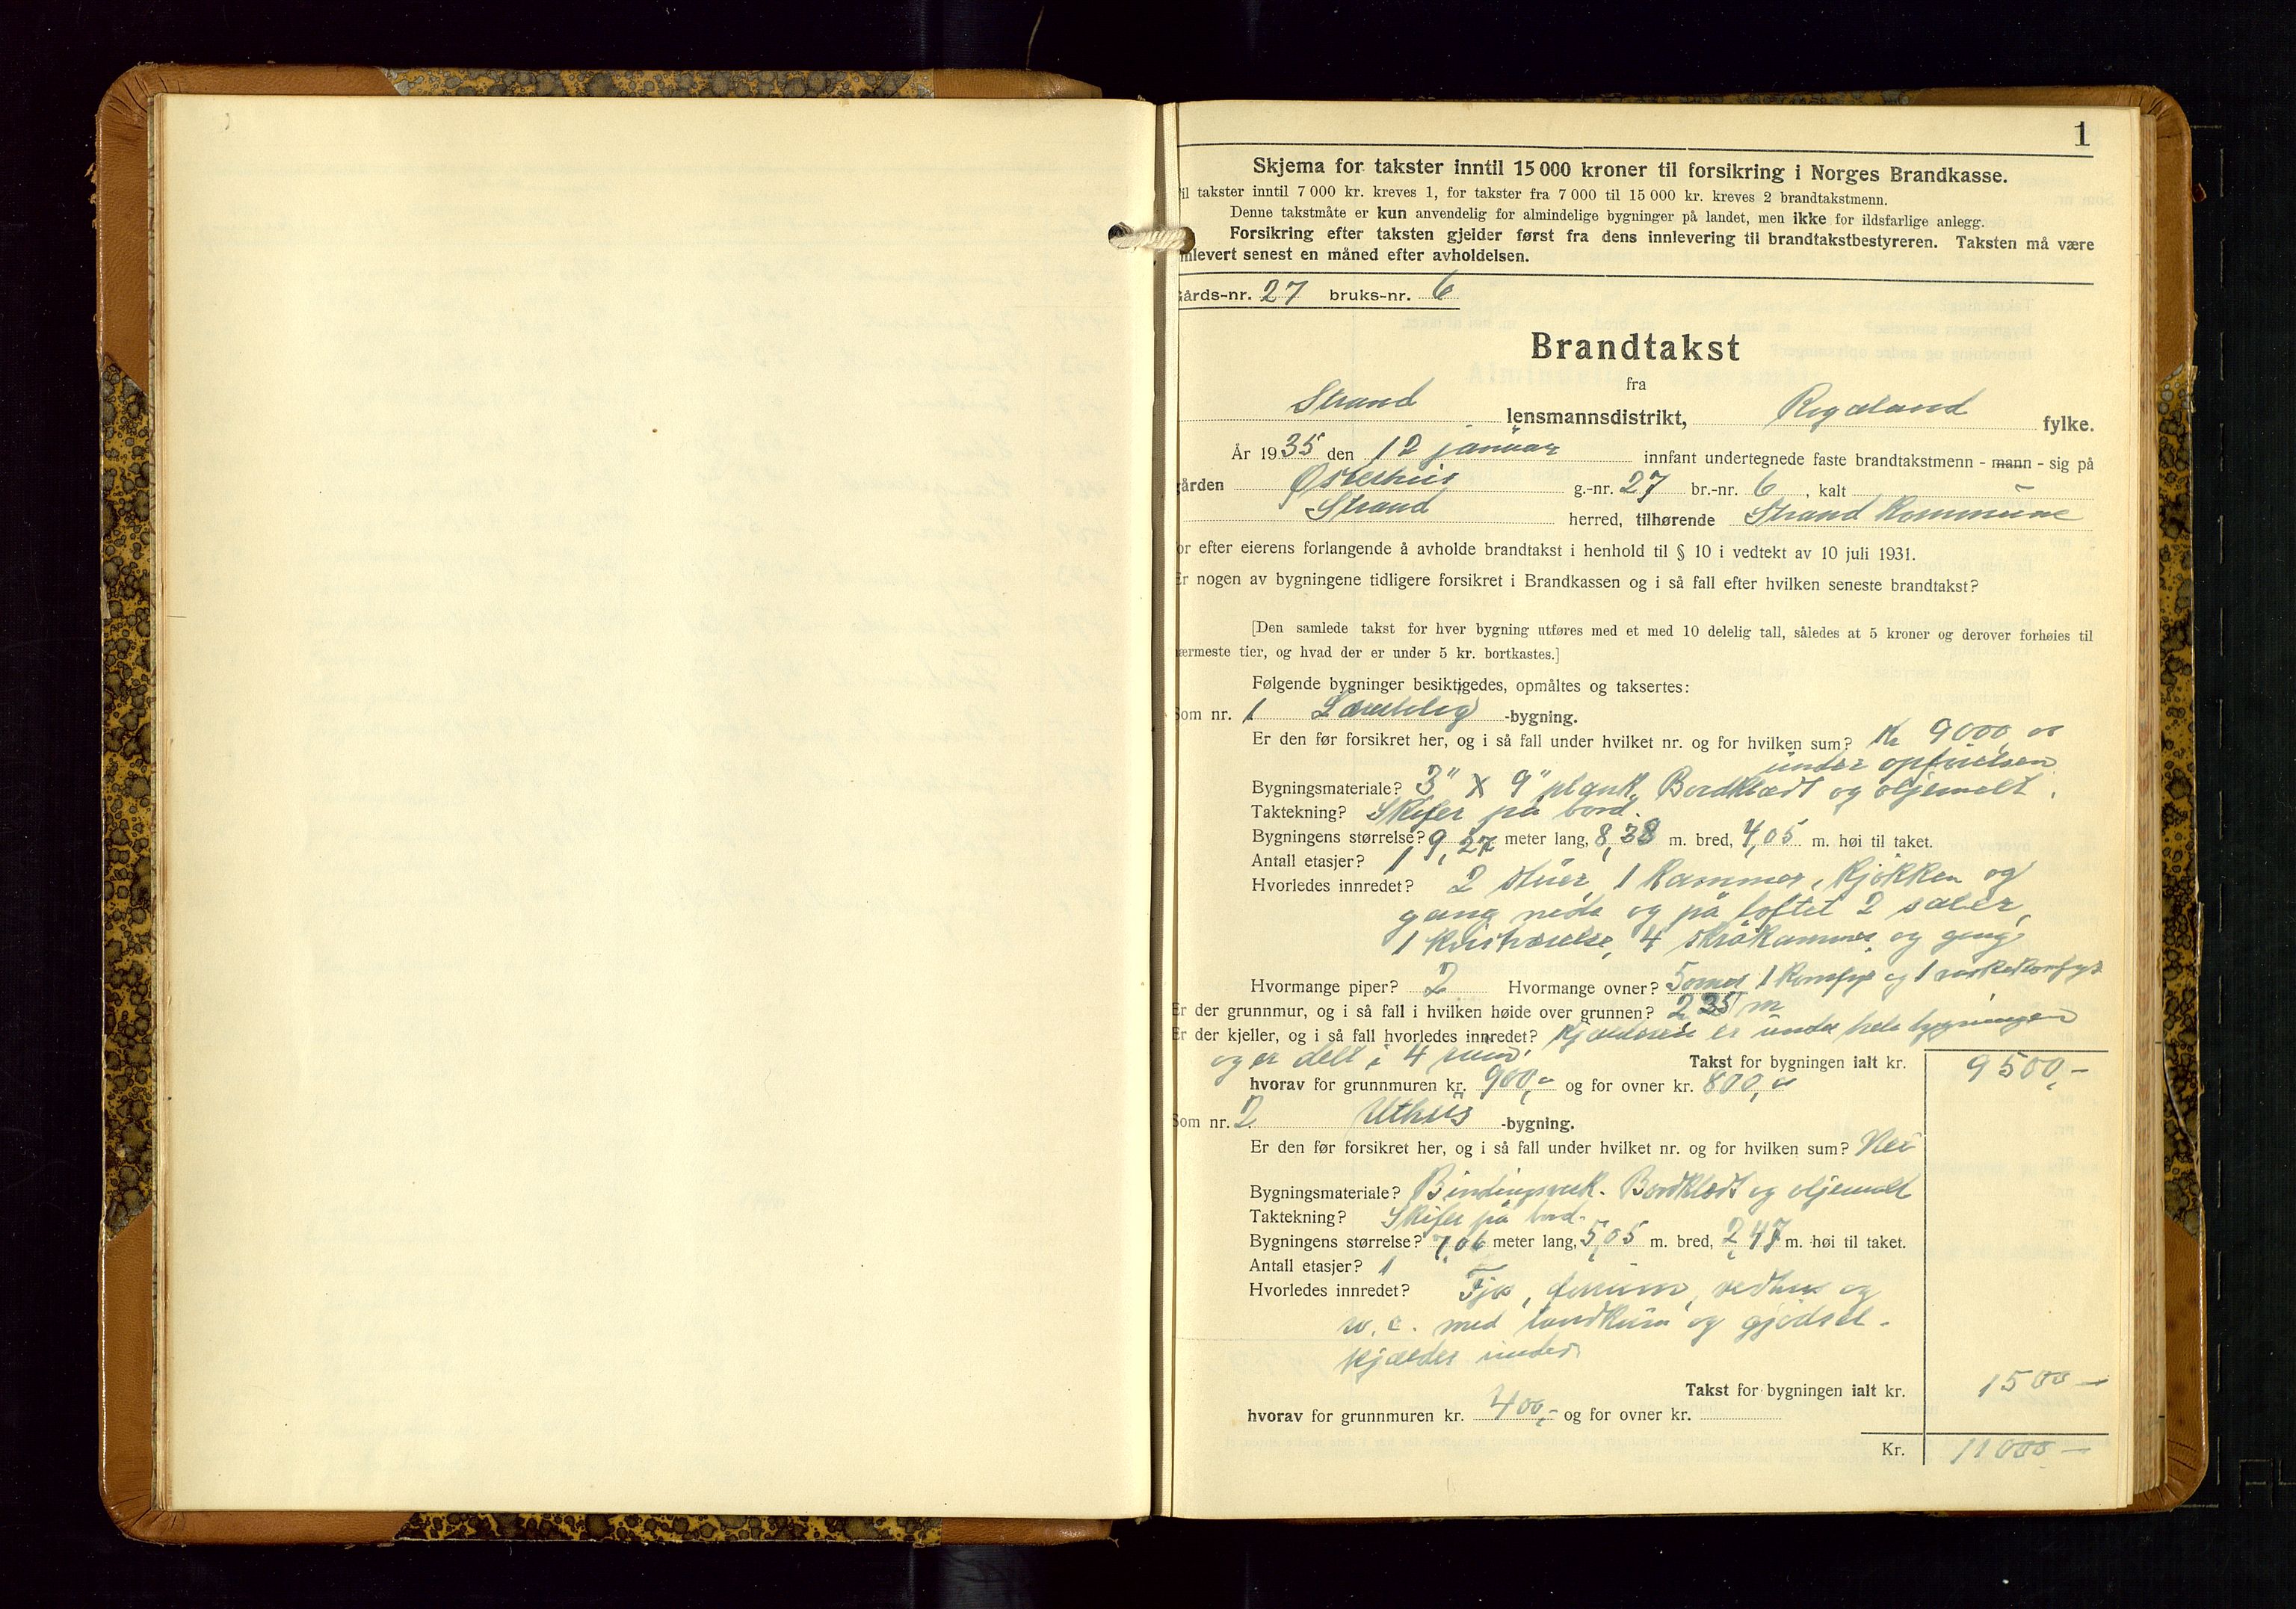 1
Skjema for takster inntil 15 000 kroner til forsikring i Norges Brandkasse.
il takster inntil 7 000 kr. kreves 1, for takster fra 7 000 til 15 000 kr. kreves 2 brandtakstmenn.
Denne takstmåte er kun anvendelig for almindelige bygninger på landet, men ikke for ildsfarlige anlegg.
Forsikring efter taksten gjelder først fra dens innlevering til brandtakstbestyreren. Taksten må være
nlevert senest en måned efter avholdelsen.
Gårds-nr. 27 bruks-nr. 6
Brandtakst
fra
Strand lensmannsdistrikt, Rogaland fylke.
År 1935 den 12 januar innfant undertegnede faste brandtakstmenn - mann - sig på
gården Østerhus g.-nr. 27 br.-nr. 6, kalt
Strand herred, tilhørende Strand Kommune
or efter eierens forlangende å avholde brandtakst i henhold til § 10 i vedtekt av 10 juli 1931.
Er nogen av bygningene tidligere forsikret i Brandkassen og i så fall efter hvilken seneste brandtakst?
[Den samlede takst for hver bygning utføres med et med 10 delelig tall, således at 5 kroner og derover forhøies til
ærmeste tier, og hvad der er under 5 kr. bortkastes.]
Følgende bygninger besiktigedes, opmåltes og taksertes:
Som nr. 1 -bygning.
Er den før forsikret her, og i så fall under hvilket nr. og for hvilken sum? Kr 9000,00
under opførelsen
Bygningsmateriale? 3" x 9" plank. Bordklædt og oljemalt.
Taktekning? Skifer på bord.
Bygningens størrelse? 9,27 meter lang, 8,38 m. bred, 4,05 m. høi til taket.
Antall etasjer? 1
Hvorledes innredet? 2 stuer, 1 Kammer, Kjøkken og
gang nede og på loftet 2 saler,
1 kvistværelse, 4 skråkammer og gang
Hvormange piper? 2 Hvormange ovner? 5 ovner 1 Komfyr og 1 vaskekomfyr
Er der grunnmur, og i så fall i hvilken høide over grunnen? 2 35 m
Er der kjeller, og i så fall hvorledes innredet? Kjælderen er under hele bygningen
og er delt i 4 rum. Takst for bygningen ialt kr. 9500,-
hvorav for grunnmuren kr. 900,- og for ovner kr. 800,-
Som nr. 2 Uthus -bygning.
Er den før forsikret her, og i så fall under hvilket nr. og for hvilken sum? Nei
Bygningsmateriale? Bindingsverk. Bordklædt og oljemalt
Taktekning? Skifer på bord.
Bygningens størrelse? 7,06 meter lang, 5,05 m. bred, 2,47 m. høi til taket.
Antall etasjer? 1
Hvorledes innredet? Fjøs, forrum, vedhus og
w.c. med landkum og gjødsel-
kjælder under
Takst for bygningen ialt kr. 1500 -
hvorav for grunnmuren kr. 400,- og for ovner kr.
Kr. 11000 -